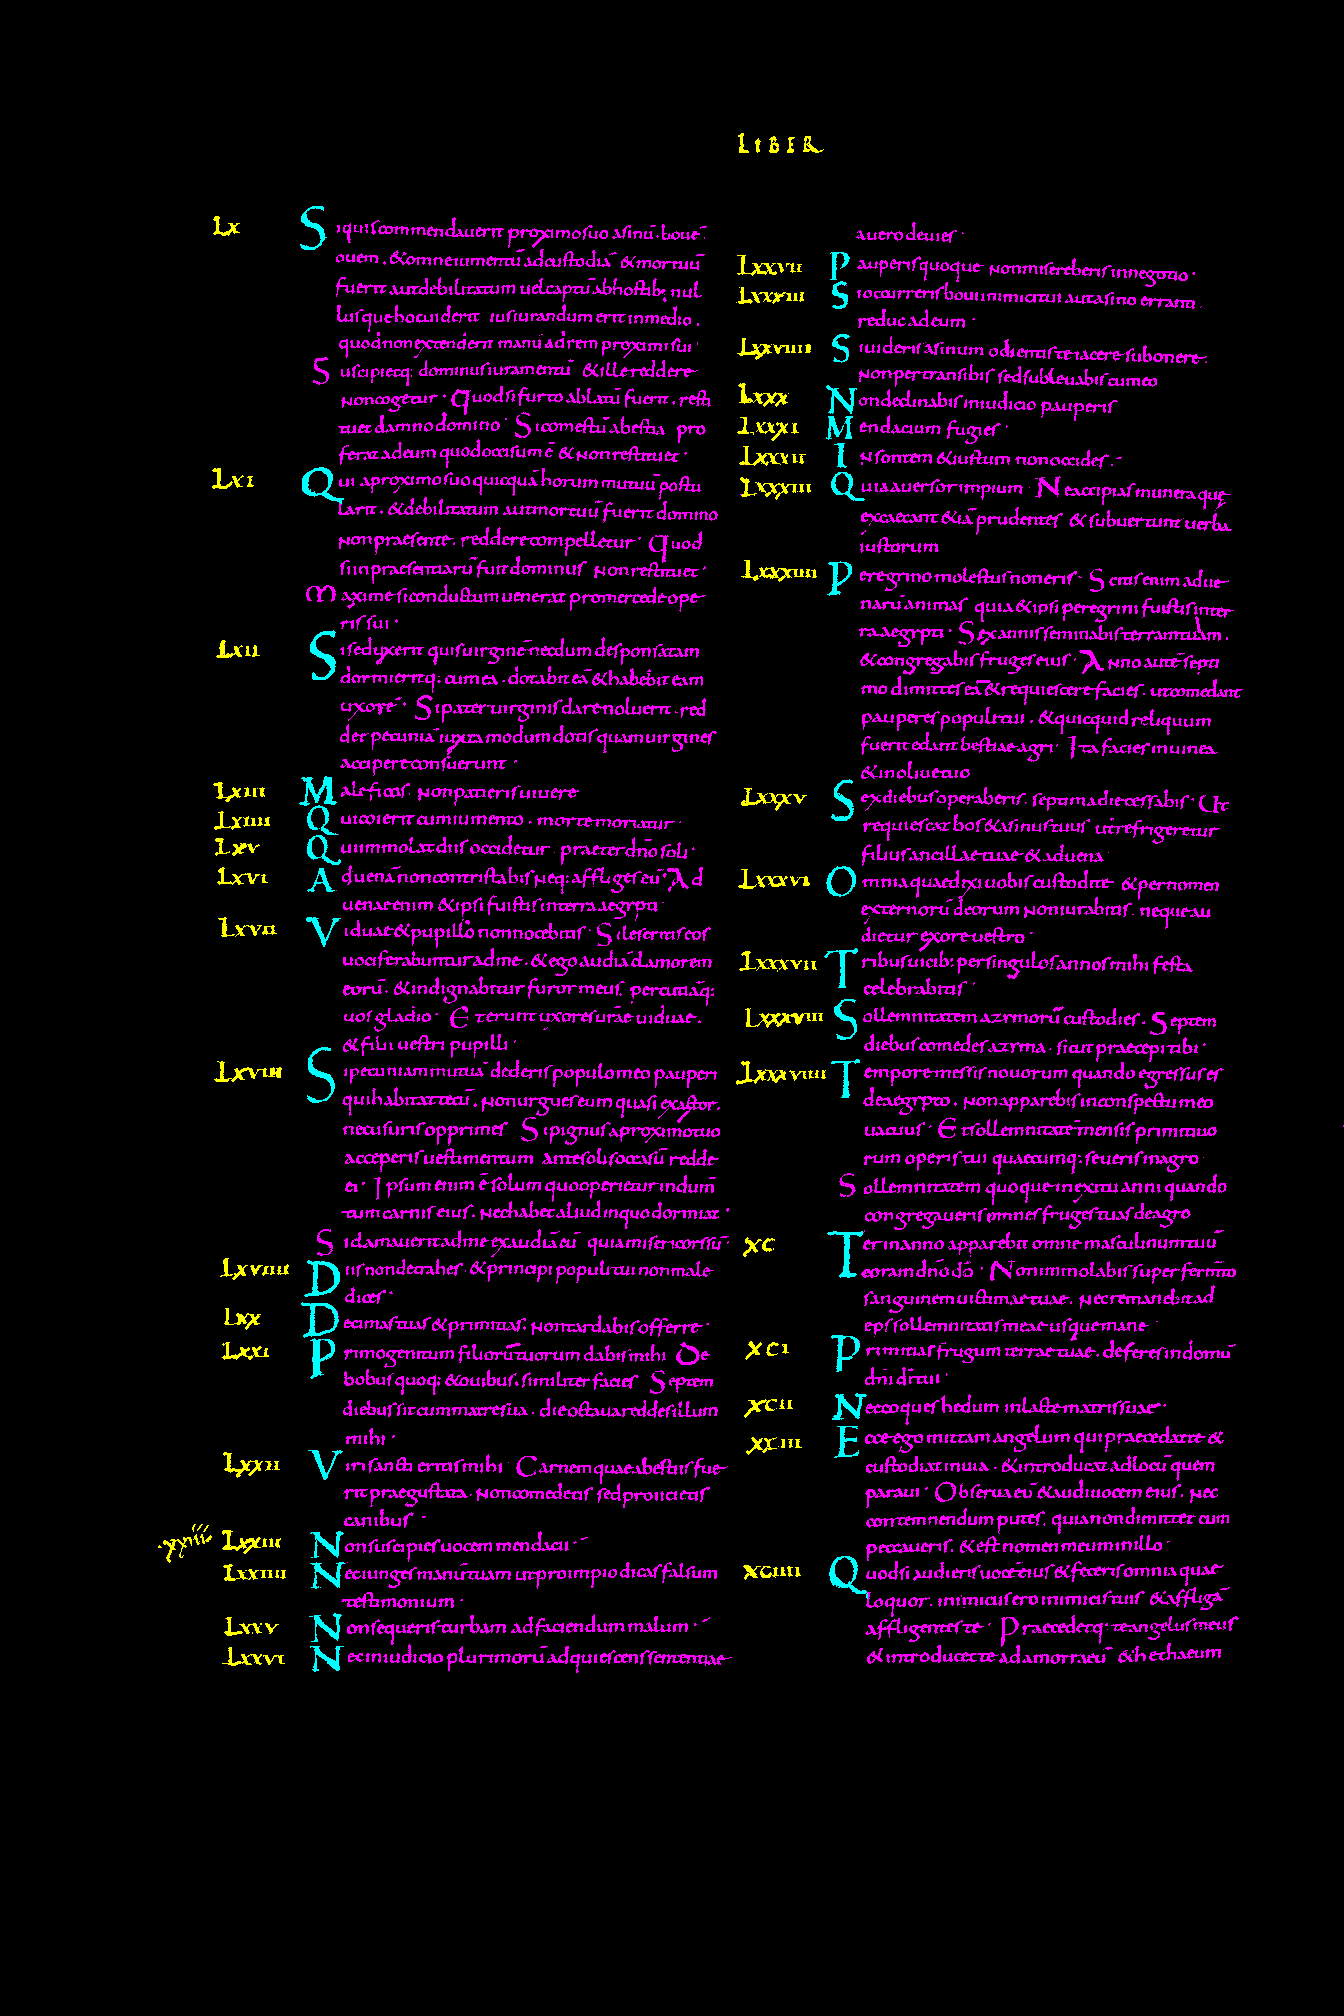 LIBER
LX Si quis commendauerit proximo suo asinū. boue.
ouem. & omne iumentū ad custodiā & mortuū
fuerit aut debilitatum uel captū ab hostib; nul
lusque hoc uiderit iusiurandum erit in medio.
quod non extenderit manū ad rem proximi sui
Suscipietq; dominus iuramentū & ille reddere
non cogetur. Quod si furto ablatū fuerit. resti
tuet damno domino. Si comestū a bestia pro
ferat ad eum quod occisum ē & non restituet.
LXI Qui a proximo suo quicquā horum mutuū postu
larit. & debilitatum aut mortuū fuerit domino
non praesente. reddere compelletur. Quod
si in praesentiarū fuit dominus non restituet.
Maxime si conductum uenerat pro mercede ope
ris sui.
LXII Si seduxerit quis uirginē necdum desponsatam
dormieritq; cum ea. dotabit eā & habebit eam
uxorē. Si pater uirginis dare noluerit. red
det pecuniā iuxta modum dotis quam uirgines
accipere consuerunt.
LXIII Maleficos non patieris uiuere
LXIIII Qui coierit cum iumento. morte moriatur.
LXV Qui immolat diis occidetur. praeter dn̄o soli.
LXVI Aduenā non contristabis neq; affliges eū. Ad
uenae enim & ipsi fuistis in terra aegypti.
LXVII Viduae & pupillo non nocebitis. Si leseritis eos
uociferabuntur ad me. & ego audiā clamorem
eorū. & indignabitur furor meus. percutiāq;
uos gladio. Et erunt uxores urāe uiduae.
& filii uestri pupilli.
LXVIII Si pecuniam mutuā dederis populo meo pauperi
qui habitat tecū. non urgues eum quasi exactor.
nec usuris opprimes Si pignus a proximo tuo
acceperis uestimentum ante solis occasū redde
ei. Ipsum enim ē solum quo operietur indum̄
tum carnis eius. nec habet aliud in quo dormiat.
Si clamauerit ad me exaudiā eū quia misericors sū.
LXVIIII Diis non detrahes. & principi populi tui non male
dices.
LXX Decimas tuas & primitias. non tardabis offerre.
LXXI Primogenitum filiorū tuorum dabis mihi De
bobus quoq; & ouibus. similiter facies Septem
diebus sit cum matre sua. die octaua reddes illum
mihi.
LXXII Viri sancti eritis mihi. Carnem quae a bestiis fue
rit praegustata. non comedetis sed proiicietis
canibus.
.xxiii. LXXIII Non suscipies uocem mendacii.
LXXIIII Nec iunges manū tuam ut pro impio dicas falsum
testimonium.
LXXV Non sequeris turbam ad faciendum malum.
LXXVI Nec in iudicio plurimorū adquiescens sententiae
a uero deuies.
LXXVII Pauperis quoque non misereberis in negotio.
LXXVIII Si occurreris boui inimici tui aut asino erranti.
reduc ad eum.
LXXVIIII Si uideris asinum odientis te iacere sub onere.
non pertransibis sed subleuabis cum eo
LXXX Non declinabis in iudicio pauperis
LXXXI Mendacium fugies.
LXXXII Insontem & iustum non occides.
LXXXIII Quia auersor impium. Ne accipias munera que
excaecant & iā prudentes & subuertunt uerba
iustorum
LXXXIIII Peregrino molestus non eris. Scitis enim adue
narū animas quia & ipsi peregrini fuistis in ter
ra aegypti. Sex annis seminabis terram tuam.
& congregabis fruges eius. Anno autē septi
mo dimittes eā & requiescere facies. ut comedant
pauperes populi tui. & quicquid reliquum
fuerit edant bestiae agri. Ita facies in uinea
& in oliueto
LXXXV Sex diebus operaberis. septima die cessabis. Ut
requiescat bos & asinus tuus ut refrigeretur
filius ancillae tuae & aduena
LXXXVI Omnia quae dixi uobis custodite & per nomen
externorū deorum non iurabitis. neque au
dietur ex ore uestro.
LXXXVII Tribus uicib; per singulos annos mihi festa
celebrabitis.
LXXXVIII Sollemnitatem azymorū custodies. Septem
diebus comedes azyma. sicut praecepi tibi.
LXXXVIIII Tempore messis nouorum quando egressus es
de aegypto. non apparebis in conspectu meo
uacuus. Et sollemnitatē mensis primitiuo
rum operis tui quaecumq; seueris in agro
Sollemnitatem quoque in exitu anni quando
congregaueris omnes fruges tuas de agro
XC Ter in anno apparebit omne masculinum tuū
coram dn̄o dō. Non immolabis super fermtō
sanguinem uictimae tuae. nec remanebit ad
eps sollemnitatis meae usque mane
XCI Primitias frugum terrae tuae. deferes in domū
dn̄i dī tui.
XCII Nec coques hedum in lacte matris suae.
XCIII Ecce ego mittam angelum qui praecedat te &
custodiat in uia. & introducat ad locū quem
paraui. Obserua eū & audi uocem eius. nec
contemnendum putes. quia non dimittet cum
peccaueris. & est nomen meum in illo.
XCIIII Quod si audieris uocē eius & feceris omnia quae
loquor. inimicus ero inimicis tuis & affligā
affligentes te. Praecedetq; te angelus meus
& introducet te ad amorraeū & hethaeum